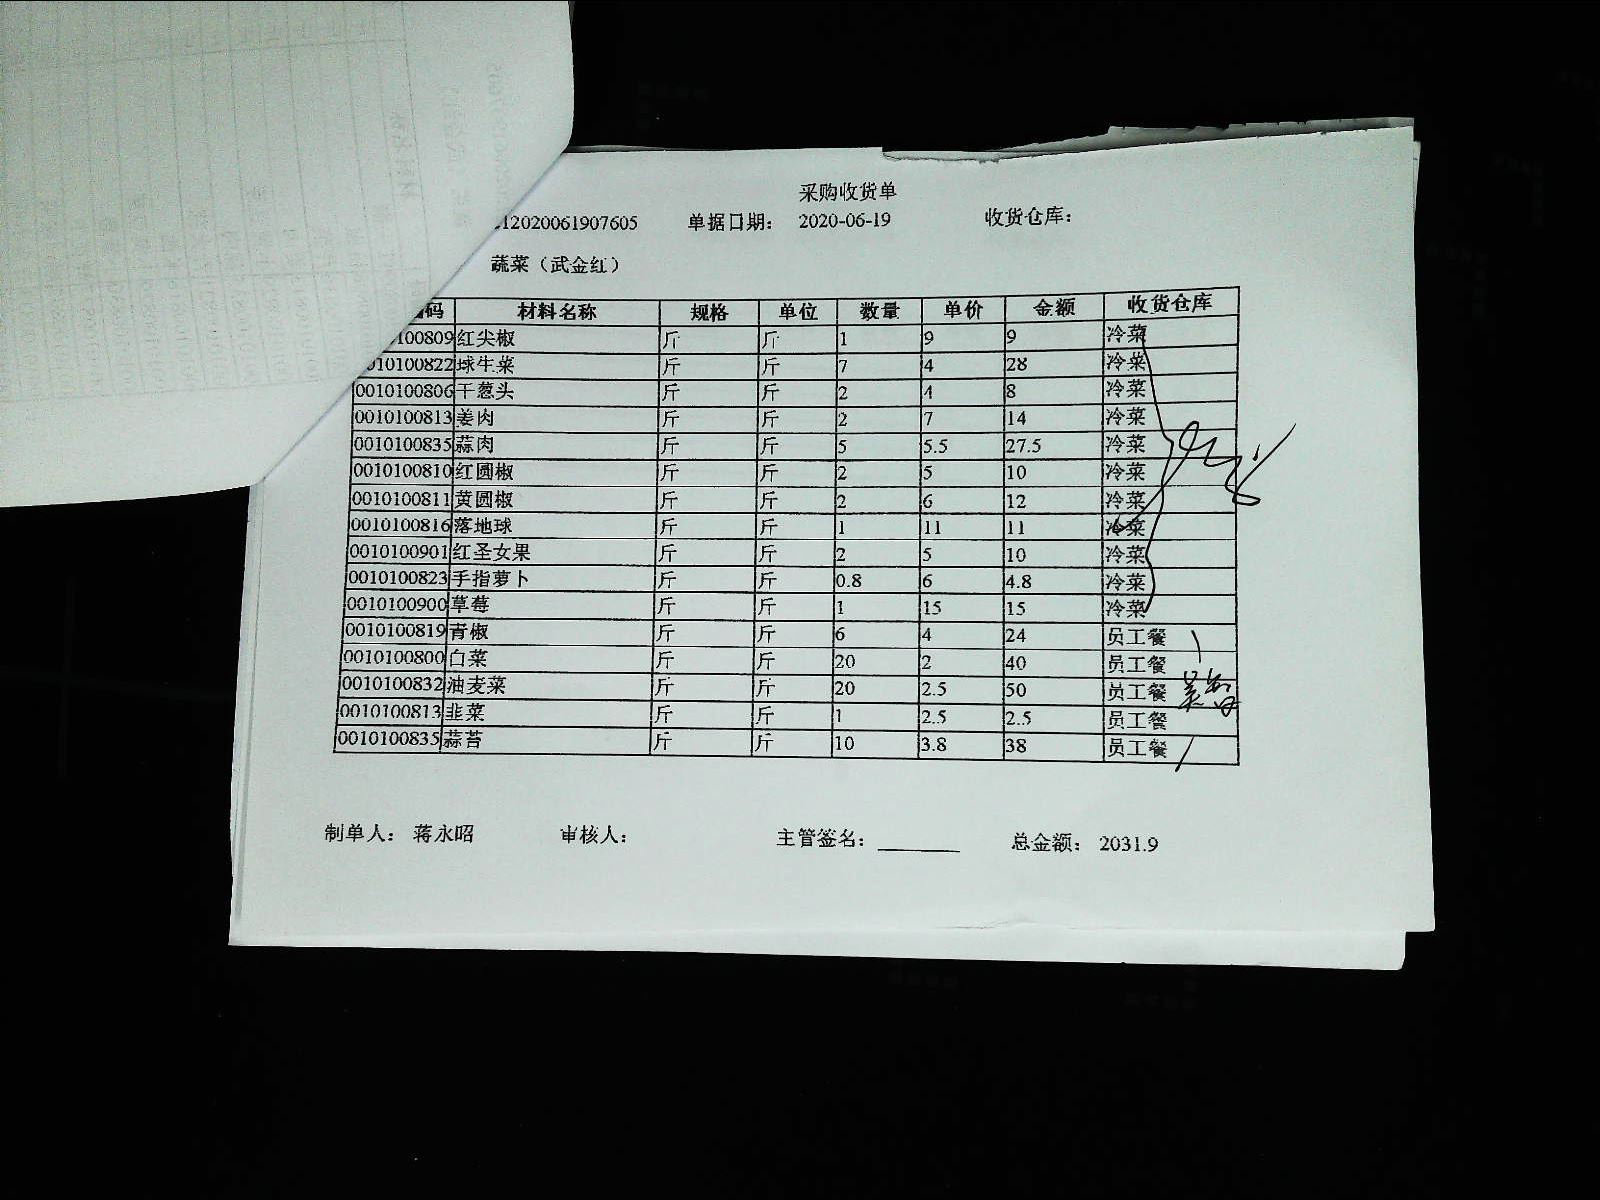 采购收货单
12020061907605 单据日期: 2020-06-19 收货仓库:
蔬菜（武金红）
码 材料名称 规格 单位 数量 单价 金额 收货仓库
100809 红尖椒 斤 斤 1 9 9 冷菜
010100822 球生菜 斤 斤 7 4 28 冷菜
0010100806 干葱头 斤 斤 2 4 8 冷菜
0010100813 姜肉 斤 斤 2 7 14 冷菜
0010100835 蒜肉 斤 斤 5 5.5 27.5 冷菜
0010100810 红圆椒 斤 斤 2 5 10 冷菜
0010100811 黄圆椒 斤 斤 2 6 12 冷菜
0010100816 落地球 斤 斤 1 11 11 冷菜
0010100901 红圣女果 斤 斤 2 5 10 冷菜
0010100823 手指萝卜 斤 斤 0.8 6 4.8 冷菜
0010100900 草莓 斤 斤 1 15 15 冷菜
0010100819 青椒 斤 斤 6 4 24 员工餐
0010100800 白菜 斤 斤 20 2 40 员工餐
0010100832 油麦菜 斤 斤 20 2.5 50 员工餐
0010100813 韭菜 斤 斤 1 2.5 2.5 员工餐
0010100835 蒜苔 斤 斤 10 3.8 38 员工餐
制单人: 蒋永昭 审核人: 主管签名: 总金额: 2031.9